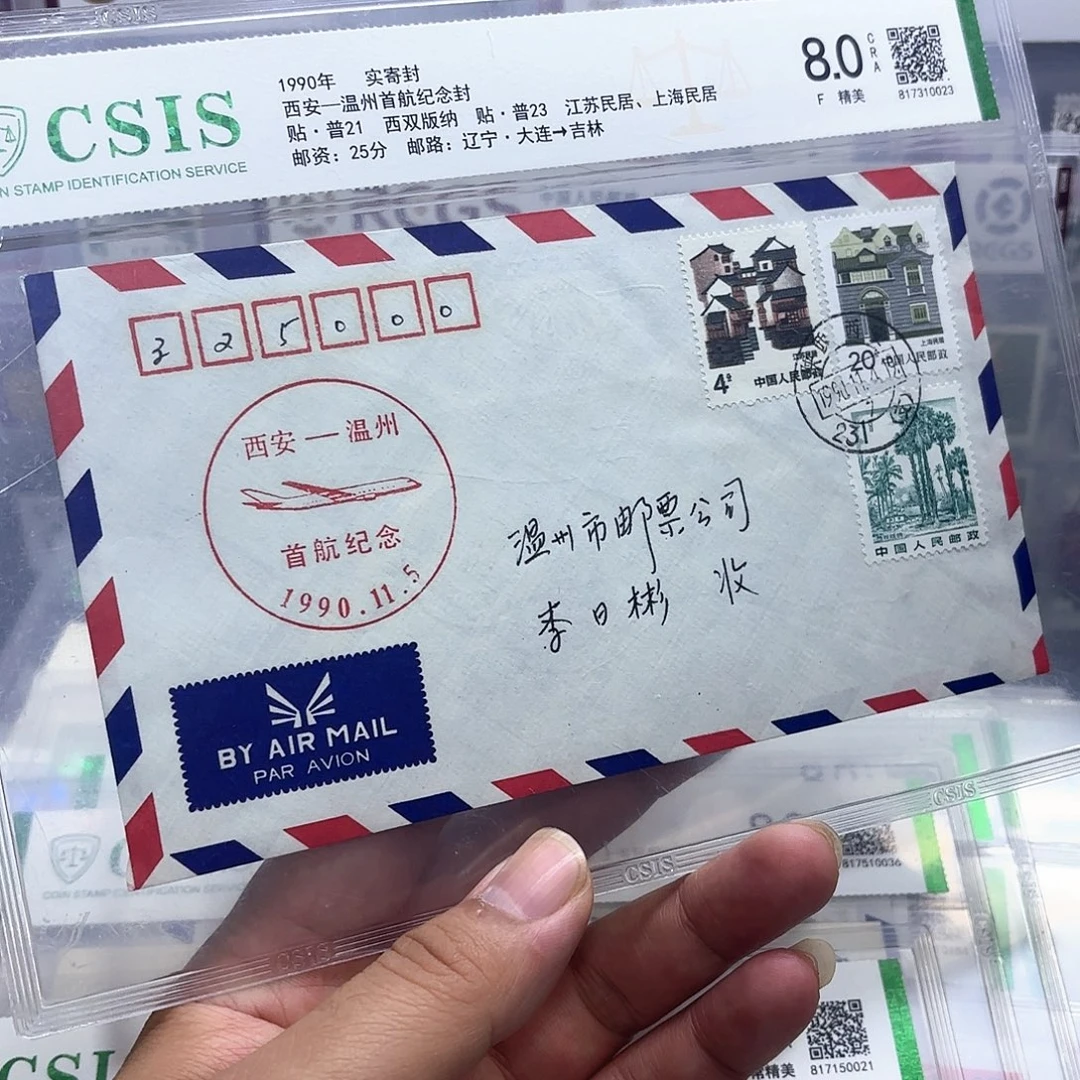 CSIS
CSIS
N STAMP IDENTIFICATION SERVICE
1990年 实寄封
西安—温州首航纪念封
贴·普21 西双版纳 贴·普23 江苏民居、上海民居
邮资：25分 邮路：辽宁·大连→吉林
8.0
CRA
F 精美
817310023
325000
西安—温州
首航纪念
1990.11.5
4分
江苏民居
中国人民邮政
20分
上海民居
中国人民邮政
231
中国人民邮政
温州市邮票公司
李日彬 收
BY AIR MAIL
PAR AVION
CSIS
CSIS
CSIS
817510036
COIN STAMP IDENTIFICATION SERVICE
CSI
精美
817150021